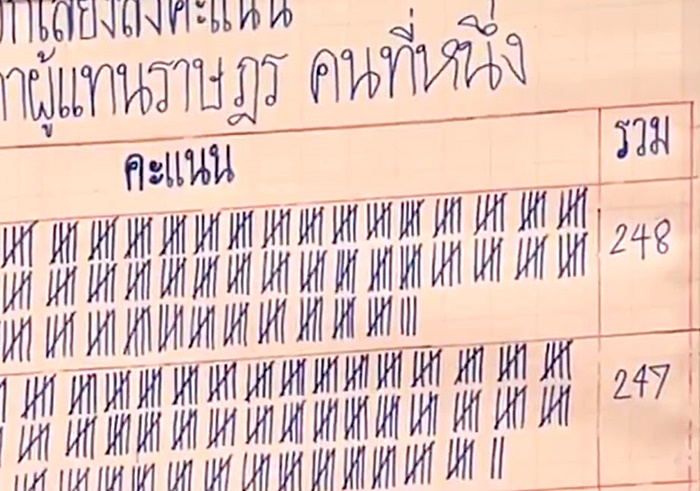 คะแนน
ผู้แทนราษฎร คนที่หนึ่ง
คะแนน
รวม
248
247